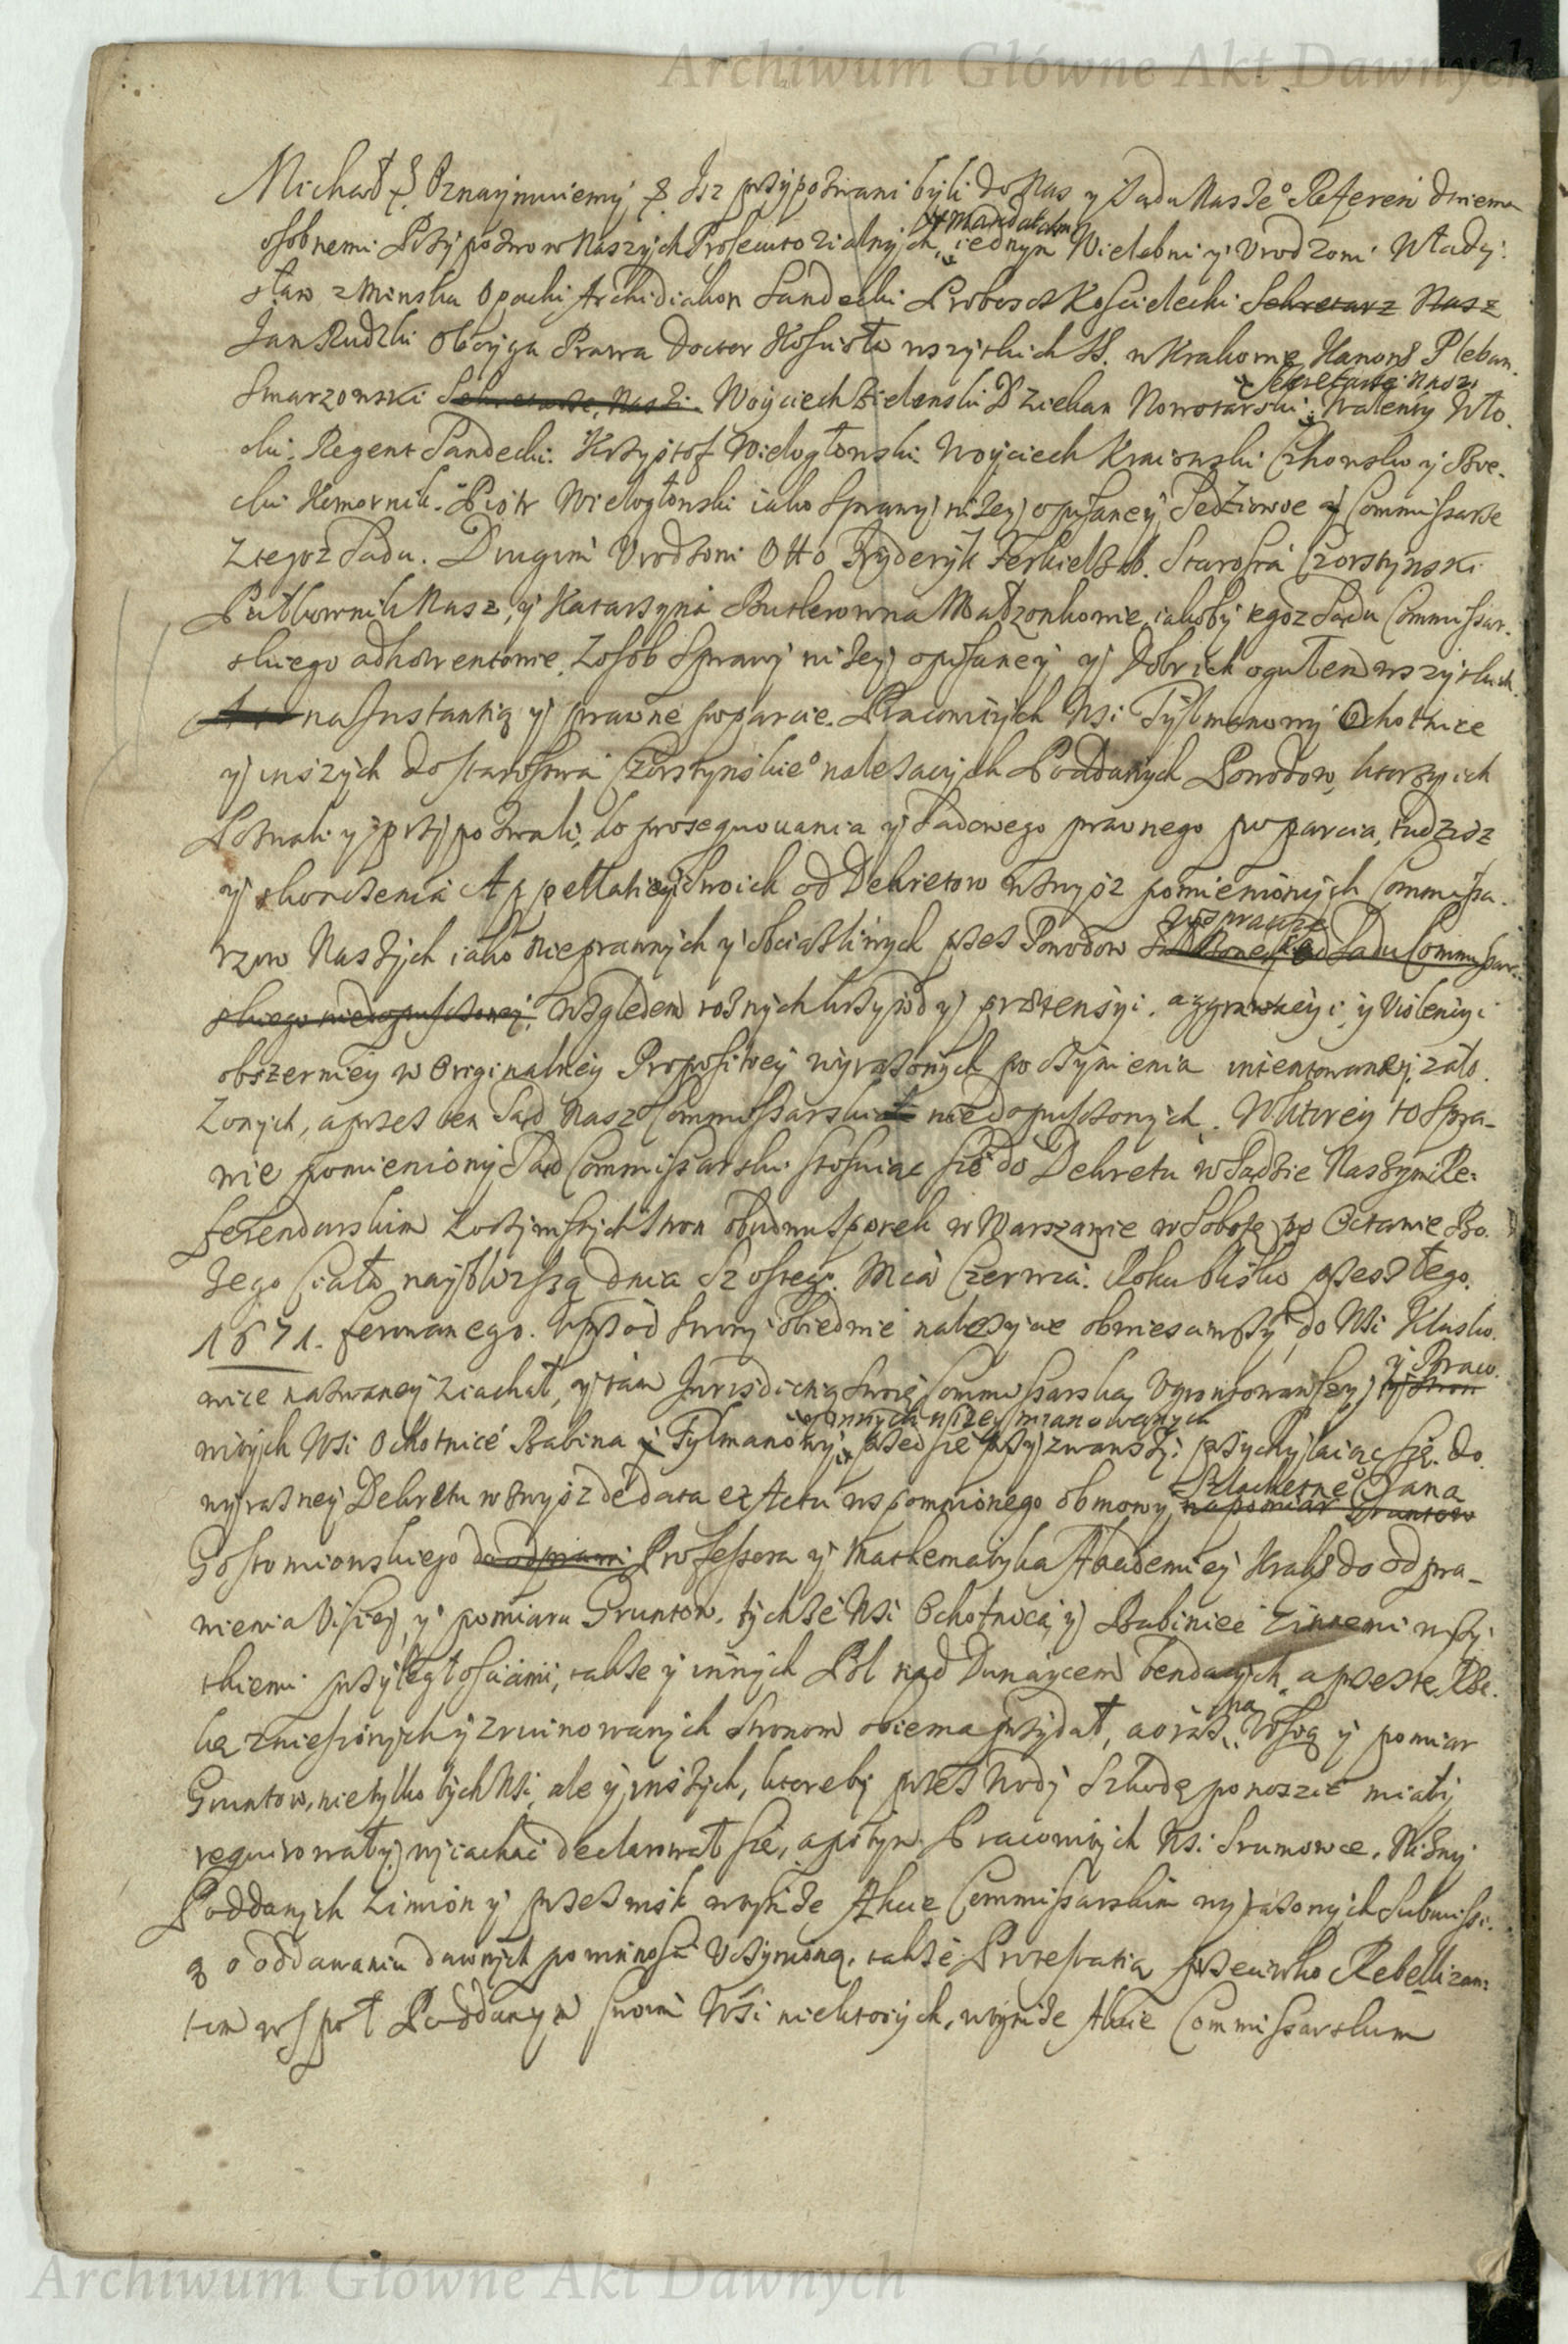 Archiwum Główne Akt Dawnych
Michał &. Oznaymuiemy & Isz przypozwani byli do Nas y Sądu Nasze° Referen dwiema
osobnemi Przypozwow Naszych Prosecutorialnych, y Mandatem iednym Wielebni y Vrodzoni Włady:
sław z Minska Opacki Archidiakon Sandecki Proboscz Koscielecki Sekretarz Nasz
Jan Rudzki Oboyga Prawa Doctor Koscioła wszystkich SS. w Krakowie Kanonk Pleban
Smarzowski Sekretarze Naszi Woyciech Zielenski Dziekan Nowotarski, Sekretarze Naszi Walenty Wło.
cki, Regent Sandecki. Krzysztof Wielogłowski Woyciech Kraiewski Czhowski y Biec.
cki Komornik. Piotr Wielogłowski iako Sprawy niżey opisaney Sędziowie y Commissarze
z tegoz Sadu. Drugim Vrodzoni Otto Fryderyk Felkierszamb. Starosta Czorstynski
Pułkownik Nasz, y Katarzyna Butlerowna Małzonkowie, iakoby tegoz Sadu Commissar.
skiego adhaerentowie, z osob Sprawy niżey opisaney y Dobr ich ogułem wszystkich
na Instantią y prawne poparcie Pracowitych Wsi Tylmanowy Ochotnice
y inszych do Starostwa Czorstynskie° nalezacych Poddanych Powodow, ktorzy ich
Pozwali y przypozwali, do prosequowania y Sadowego prawnego poparcia, tudziesz
y skonczenia Appellatiey Swoich od Dekretow zwysz pomienionych Commissa.
rzow Naszych iako nieprawnych y obciązliwych przez Powodow w Sprawie załozoney od Sadu Commissar.
skiego niedopusczoney, względem roznych krzywd y praetensyi, aggrawacyi, y Violencyi
obszerniey w Originalney Propositiey wyrazonych poczynienia intentowaney zało.
zonych, a przez ten Sąd Nasz Commissarski niedopusczonych. W ktorey to Spra-
wie pomieniony Sąd Commissarski stosuiąc się do Dekretu w Sądzie Naszym Re:
ferendarskim z oczywistych stron obudwu sporek w Warszawie w Sobotę po Octawie Bo.
żego Ciała nayblizszą dnia Szostego Mca Czerwca. Roku blisko przeszłego
1671. ferowanego. Wprzod strony obiedwie nalezycie obwiesciwszy, do Wsi Kluszko.
wice nazwaney ziachał, y tam Jurisdictią swoię Commissarską vgruntowawszy, y Praco
witych Wsi Ochotnice Babina y Tylmanowy, y innych niżey mianowanych przed się przyzwawszy: przychylaiąc się do
wyrazney Dekretu zwysz de data et Actu wspomnionego obmowy, Szlachetne° Jana na pomiar Gruntow
Gostomionskiego do odprawi Professora y Mathematyka Akademiey Krak. do odpra-
wienia Visiey, y pomiaru Gruntow, tychże Wsi Ochotnice y Babiniec z innemi wszy.
tkiemi przyległosciami, także y innych Pol nad Dunaycem bendących, a przez te Rze.
kę zniesionych y zruinowanych stronom obiema przydał, a oraz na Visią y pomiar
Gruntow, nietylko tych Wsi, ale y inszych, ktoreby przez wody szkodę ponoszic miały
requirowały, wyiachac declarował się, a potym Pracowitych Wsi Sromowce, Niżny
Poddanych z imion y przezwisk w tymże Akcie Commissarskim wyrazonych Submissi.
ą o oddawaniu dawnych powinnosci Vczynioną, także Protestatią przeciwko Rebellizan:
tom wspoł Poddanym swoim Wsi niektorych, w tymże Akcie Commissarskim
Archiwum Główne Akt Dawnych